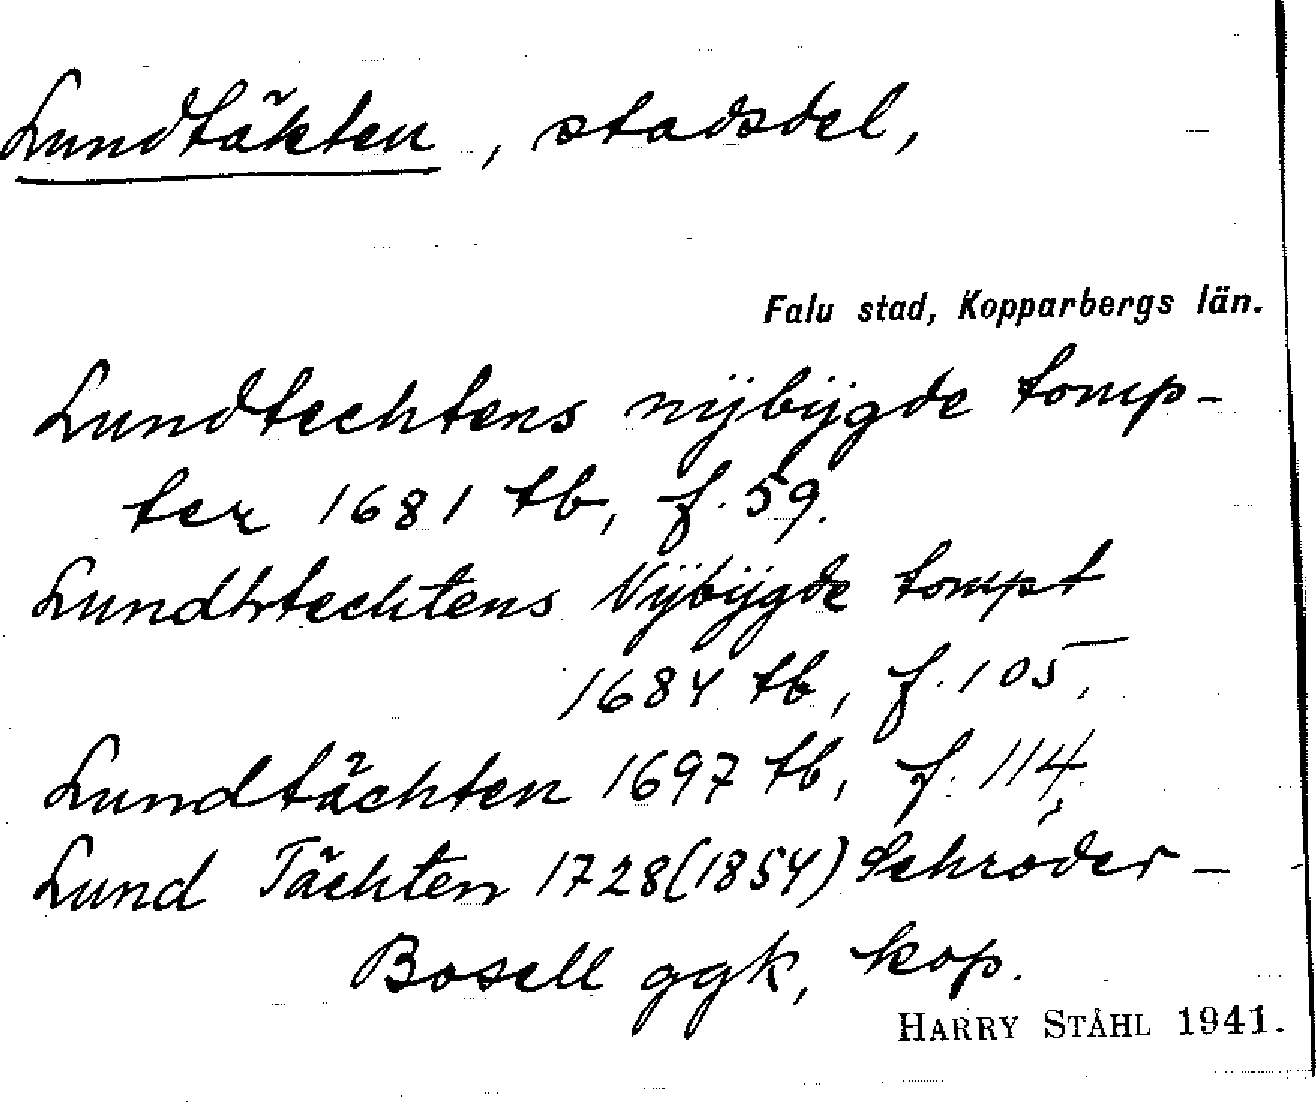 Lundtäkten, stadsdel,
Falu stad, Kopparbergs län.
Lundtechtens nÿbÿgde tomp-
ter 1681 tb, f. 59.
Lundhtechtens Nÿbÿgde tompt
1684 tb, f. 105.
Lundtächten 1697 tb, f. 114.
Lund Tächten 1728 (1854) Schröder-
Bosell ggk, kop.
HARRY STÅHL 1941.